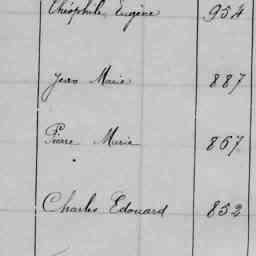 Théophile Eugène 954
Jean Marie 887
Pierre Marie 867
Charles Edouard 852